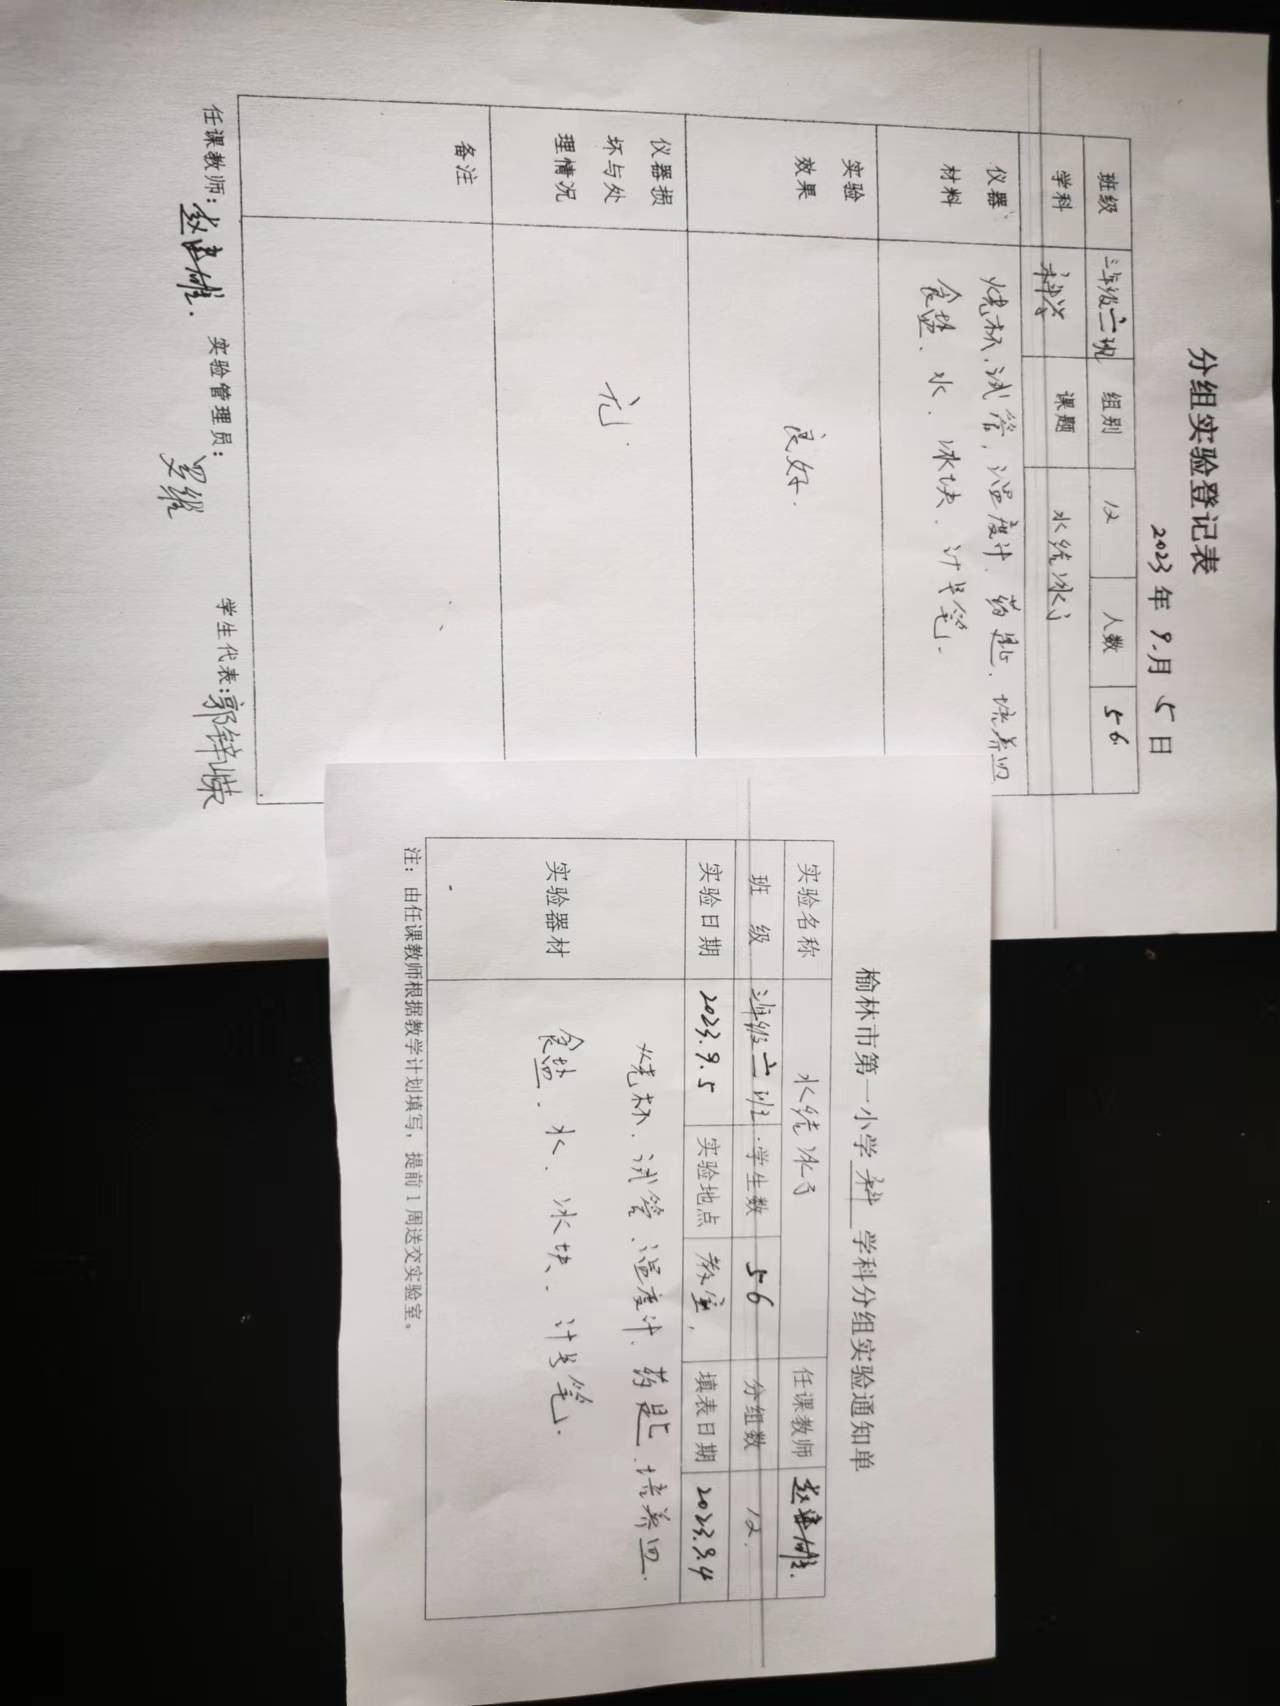 分组实验登记表
2023年9月5日
班级 三年级六班 组别 12 人数 56
学科 科学 课题 水结冰了
仪器材料 烧杯、试管、温度计、药匙、培养皿
食盐、水、冰块、计号笔.
实验效果 良好.
仪器损坏与处理情况 无.
备注
任课教师: 实验管理员: 学生代表:
榆林市第一小学 科学 学科分组实验通知单
实验名称 水结冰了 任课教师
班级 三年级六班 学生数 56 分组数 12.
实验日期 2023.9.5 实验地点 教室 填表日期 2023.9.4
实验器材 烧杯、试管、温度计、药匙、培养皿.
食盐、水、冰块、计号笔.
注：由任课教师根据教学计划填写，提前1周送交实验室。